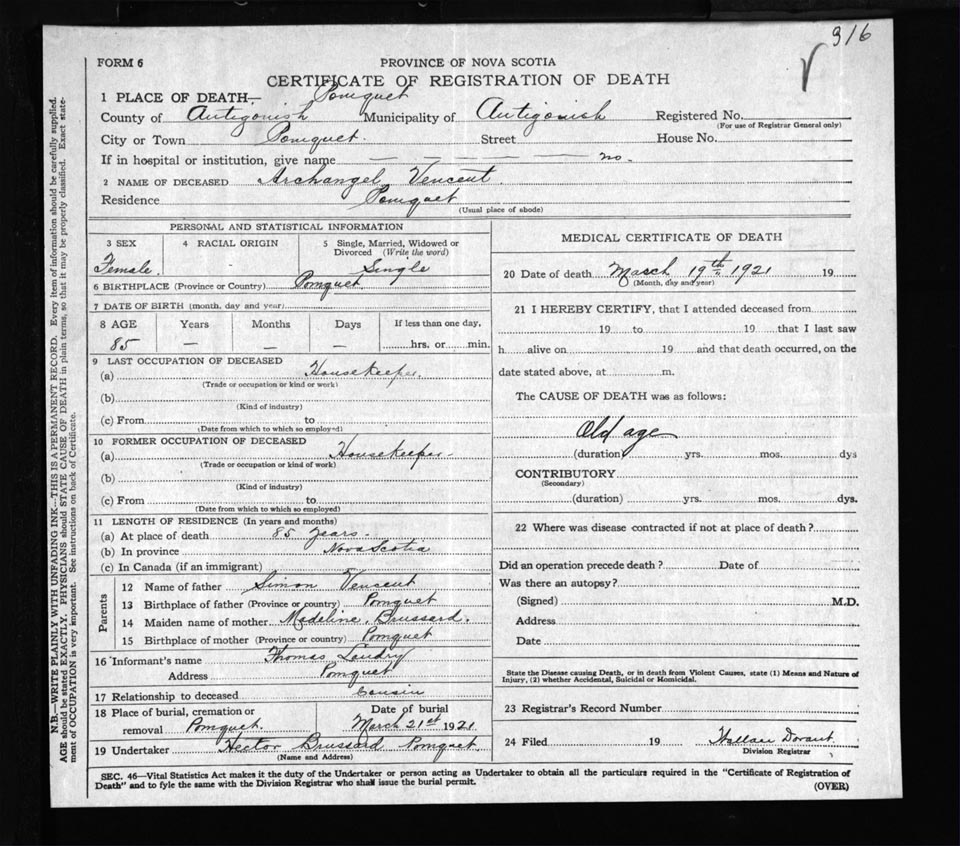 316
FORM 6
PROVINCE OF NOVA SCOTIA
CERTIFICATE OF REGISTRATION OF DEATH
1 PLACE OF DEATH— Pomquet
County of Antigonish Municipality of Antigonish Registered No.
(For use of Registrar General only)
City or Town Pomquet. Street House No.
If in hospital or institution, give name — — — — — no.
2 NAME OF DECEASED Archangel Vencent.
Residence Pomquet
(Usual place of abode)
PERSONAL AND STATISTICAL INFORMATION
3 SEX 4 RACIAL ORIGIN 5 Single, Married, Widowed or
Divorced (Write the word)
Female. - Single
6 BIRTHPLACE (Province or Country) Pomquet.
7 DATE OF BIRTH (month, day and year)
8 AGE Years Months Days If less than one day,
85 — — — hrs. or min.
9 LAST OCCUPATION OF DECEASED
(a) Housekeeper.
(Trade or occupation or kind or work)
(b)
(Kind of industry)
(c) From to
(Date from which to which so employed)
10 FORMER OCCUPATION OF DECEASED
(a) Housekeeper-
(Trade or occupation or kind of work)
(b)
(Kind of industry)
(c) From to
(Date from which to which so employed)
11 LENGTH OF RESIDENCE (In years and months)
(a) At place of death 85 years-
(b) In province Nova Scotia
(c) In Canada (if an immigrant)
Parents
12 Name of father Simon Vencent
13 Birthplace of father (Province or country) Pomquet
14 Maiden name of mother Madeline Brussard.
15 Birthplace of mother (Province or country) Pomquet
16 Informant's name Thomas Landry
Address Pomquet
17 Relationship to deceased Cousin
18 Place of burial, cremation or Date of burial
removal Pomquet. March 21st 1921
19 Undertaker Hector Brussard Pomquet.
(Name and Address)
MEDICAL CERTIFICATE OF DEATH
20 Date of death March 19th 1921 19
(Month, day and year)
21 I HEREBY CERTIFY, that I attended deceased from
19 to 19 that I last saw
h alive on 19 and that death occurred, on the
date stated above, at m.
The CAUSE OF DEATH was as follows:
Old age
(duration) yrs. mos. dys
CONTRIBUTORY
(Secondary)
(duration) yrs. mos. dys.
22 Where was disease contracted if not at place of death?
Did an operation precede death? Date of
Was there an autopsy?
(Signed) M.D.
Address
Date
State the Disease causing Death, or in death from Violent Causes, state (1) Means and Nature of
Injury, (2) whether Accidental, Suicidal or Homicidal.
23 Registrar's Record Number
24 Filed 19 Wallace Dorant
Division Registrar
SEC. 46—Vital Statistics Act makes it the duty of the Undertaker or person acting as Undertaker to obtain all the particulars required in the "Certificate of Registration of
Death" and to fyle the same with the Division Registrar who shall issue the burial permit.
(OVER)
N.B.—WRITE PLAINLY WITH UNFADING INK—THIS IS A PERMANENT RECORD. Every item of information should be carefully supplied.
AGE should be stated EXACTLY. PHYSICIANS should STATE CAUSE OF DEATH in plain terms, so that it may be properly classified. Exact state-
ment of OCCUPATION is very important. See instructions on back of Certificate.